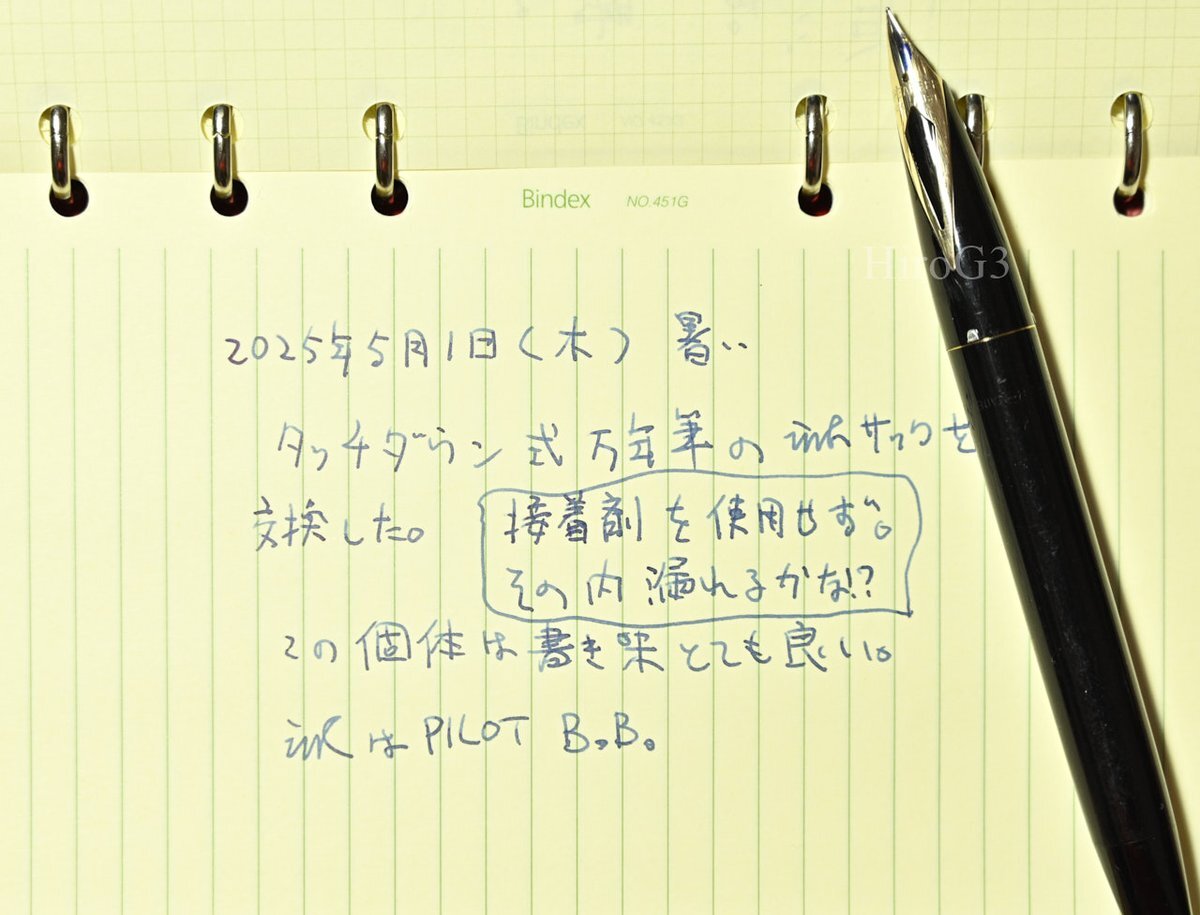 Bindex NO.451G
HiroG3
2025年5月1日(木) 暑い
タッチダウン式万年筆の inkサックを
交換した。
接着剤を使用せず。
その内漏れるかな!?
この個体は書き味とても良い。
inkは PILOT B.B.